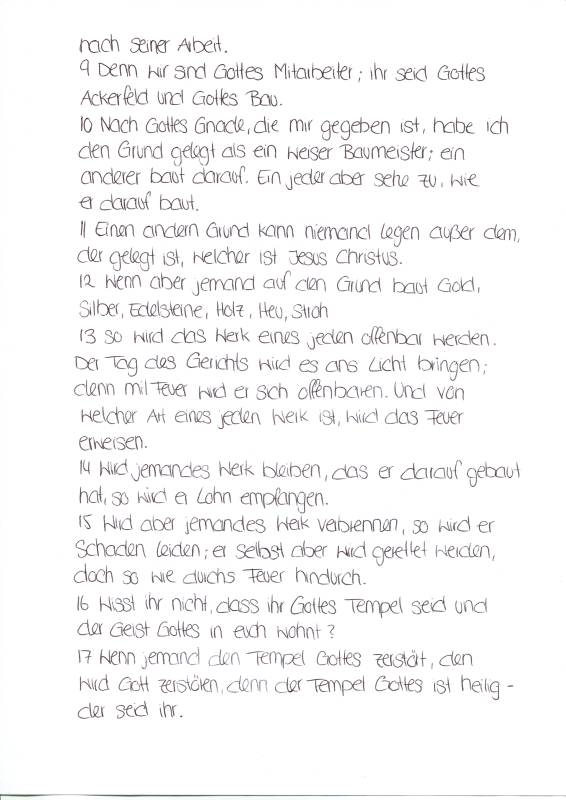 nach seiner Arbeit.
9 Denn wir sind Gottes Mitarbeiter; ihr seid Gottes
Ackerfeld und Gottes Bau.
10 Nach Gottes Gnade, die mir gegeben ist, habe ich
den Grund gelegt als ein weiser Baumeister; ein
anderer baut darauf. Ein jeder aber sehe zu, wie
er darauf baut.
11 Einen andern Grund kann niemand legen außer dem,
der gelegt ist, welcher ist Jesus Christus.
12 Wenn aber jemand auf den Grund baut Gold,
Silber, Edelsteine, Holz, Heu, Stroh
13 so wird das Werk eines jeden offenbar werden.
Der Tag des Gerichts wird es ans Licht bringen;
denn mit Feuer wird er sich offenbaren. Und von
welcher Art eines jeden Werk ist, wird das Feuer
erweisen.
14 Wird jemandes Werk bleiben, das er darauf gebaut
hat, so wird er Lohn empfangen.
15 Wird aber jemandes Werk verbrennen, so wird er
Schaden leiden; er selbst aber wird gerettet werden,
doch so wie durchs Feuer hindurch.
16 Wisst ihr nicht, dass ihr Gottes Tempel seid und
der Geist Gottes in euch wohnt?
17 Wenn jemand den Tempel Gottes zerstört, den
wird Gott zerstören, denn der Tempel Gottes ist heilig -
der seid ihr.